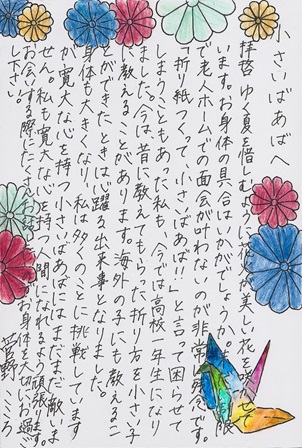 小さいばあばへ
拝啓 ゆく夏を惜しむように花々が美しい花を咲かせて
います。お身体の具合はいかがでしょうか。
で老人ホームでの面会が叶わないのが非常に残念です。
「折り紙つくって、小さいばあば!!」と言って困らせて
しまうこともあった私も、今では高校一年生になり
ました。今は、昔に教えてもらった折り方を小さい子
に教えることがあります。海外の子にも教えるこ
とができたときは心躍る出来事となりました。
身体も大きくなり、私は多くのことに挑戦しています
が、寛大な心を持つ小さいばあばにはまだまだ敵いま
せん。私も寛大な心を持つ人間になれるよう頑張ります。
お会いする際に
お身体を大切にお過ごし
下さい。
菅野 こころ